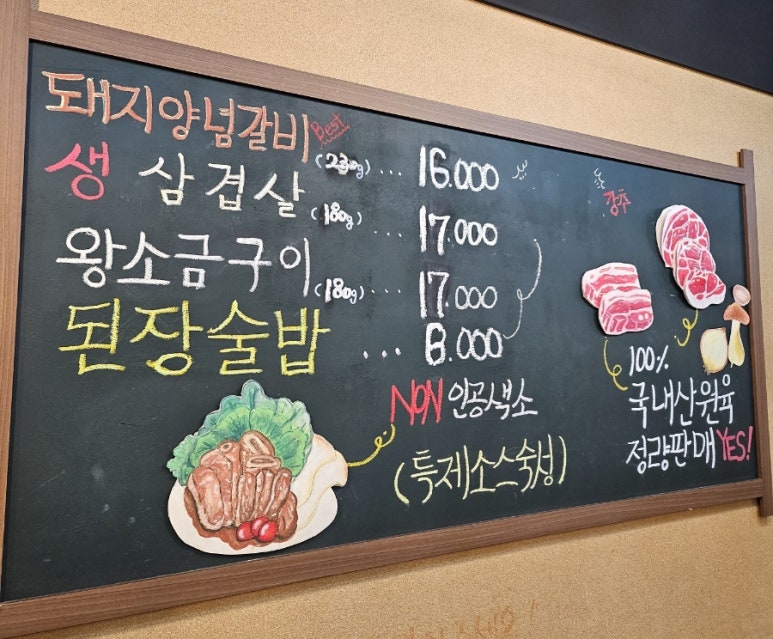 돼지양념갈비 Best (230g) ... 16.000
생 삼겹살 (180g) ... 17.000
왕소금구이 (180g) ... 17.000
된장술밥 ... 8.000
강추
NON 인공색소
(특제소스숙성)
100%
국내산원육
정량판매 YES!